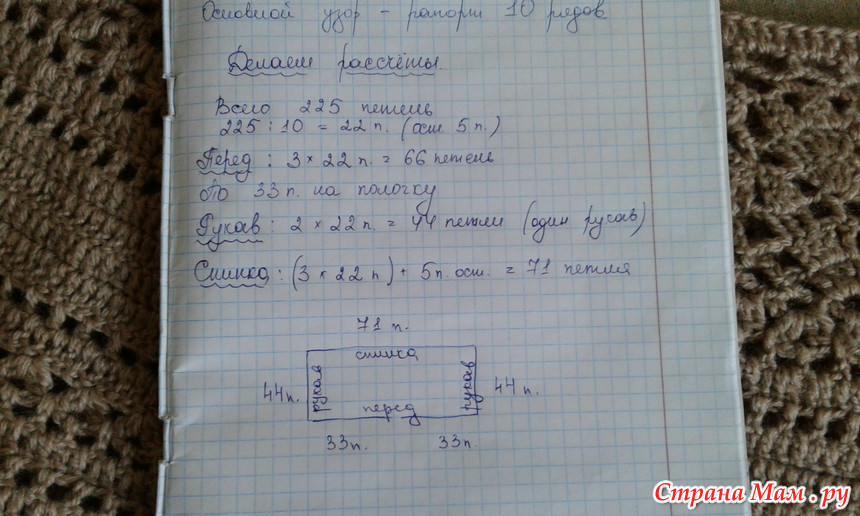 Основной узор - раппорт 10 рядов
Делаем рассчёты.
Всего 225 петель
225 : 10 = 22 п. (ост. 5 п.)
Перед : 3 × 22 п. = 66 петель
По 33 п. на полочку
Рукав : 2 × 22 п. = 44 петли (один рукав)
Спинка : (3 × 22 п) + 5 п. ост. = 71 петля
71 п.
спинка
44 п.
рукав
рукав
44 п.
перед
33 п.
33 п.
Страна Мам.ру